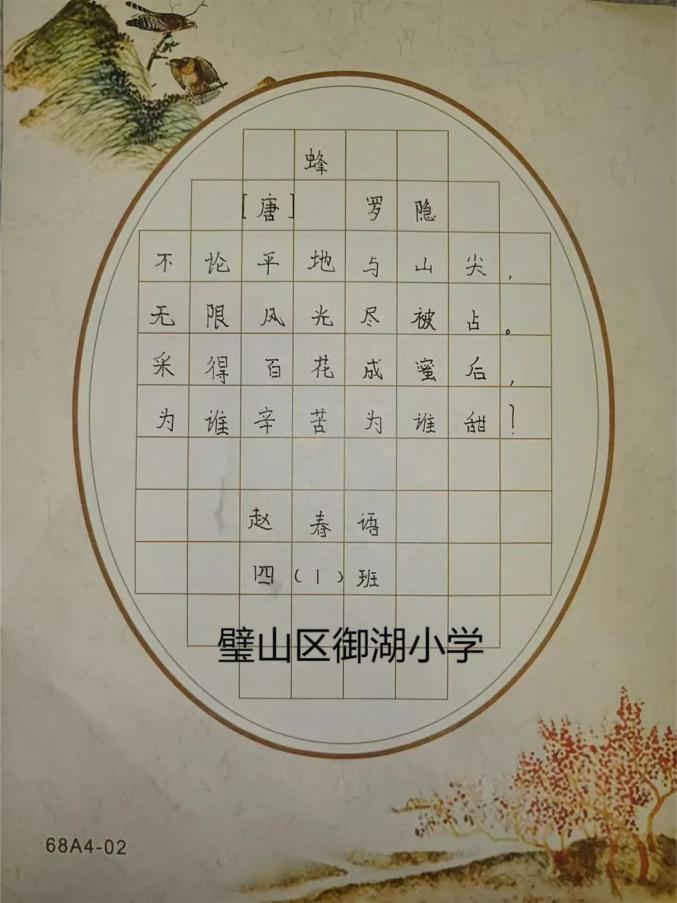 蜂
[唐] 罗隐
不论平地与山尖,
无限风光尽被占。
采得百花成蜜后,
为谁辛苦为谁甜?
赵春语
四(1)班
璧山区御湖小学
68A4-02